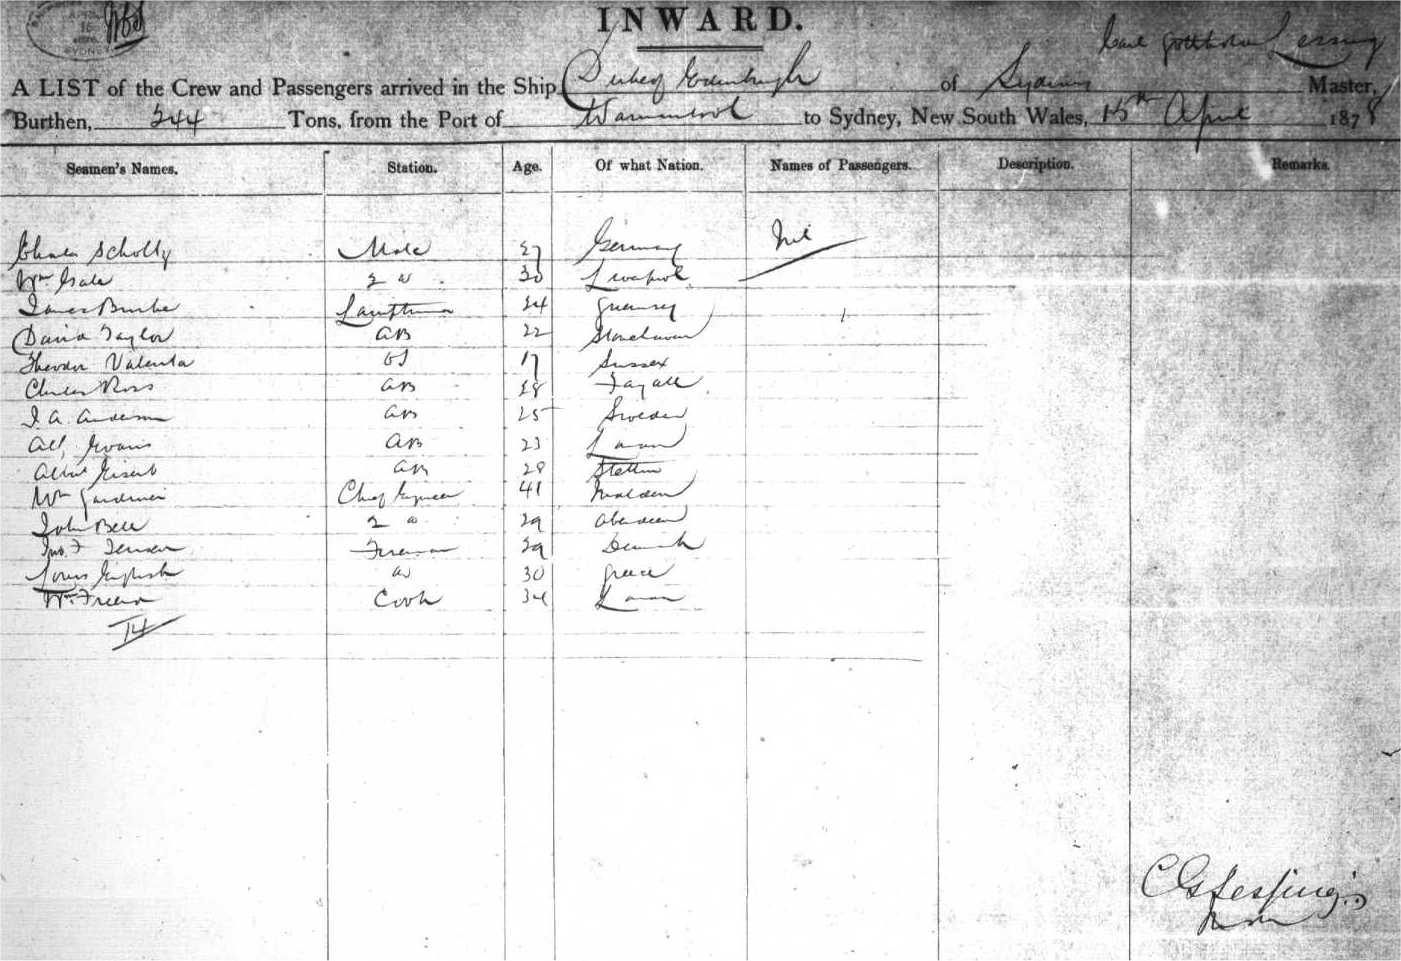 INWARD.
Carl Gotthold Lessing
A LIST of the Crew and Passengers arrived in the Ship Duke of Edinburgh of Sydney Master,
Burthen, 344 Tons, from the Port of Warrnambool to Sydney, New South Wales, 15th April 1878
Seamen's Names. Station. Age. Of what Nation. Names of Passengers. Description. Remarks.
Charles Scholtz Mate 27 Germany Nil
Wm Gale 2 " 30 Liverpool
James Burke Lamptrimmer 24 Guernsey
David Taylor AB 22 Stonehaven
Theodor Valenta OS 17 Sussex
Charles Ross AB 28 Fayall
J. A. Anderson AB 25 Sweden
Alf, Evans AB 23 London
Albert AB 28 Stettin
Wm Gardiner Chief Engineer 41 Maldon
John Bell 2 " 29 Aberdeen
Jno. F Jensen Fireman 29 Denmark
Louis English " 30 Greece
Wm Cook 34 London
14
C G Lessing